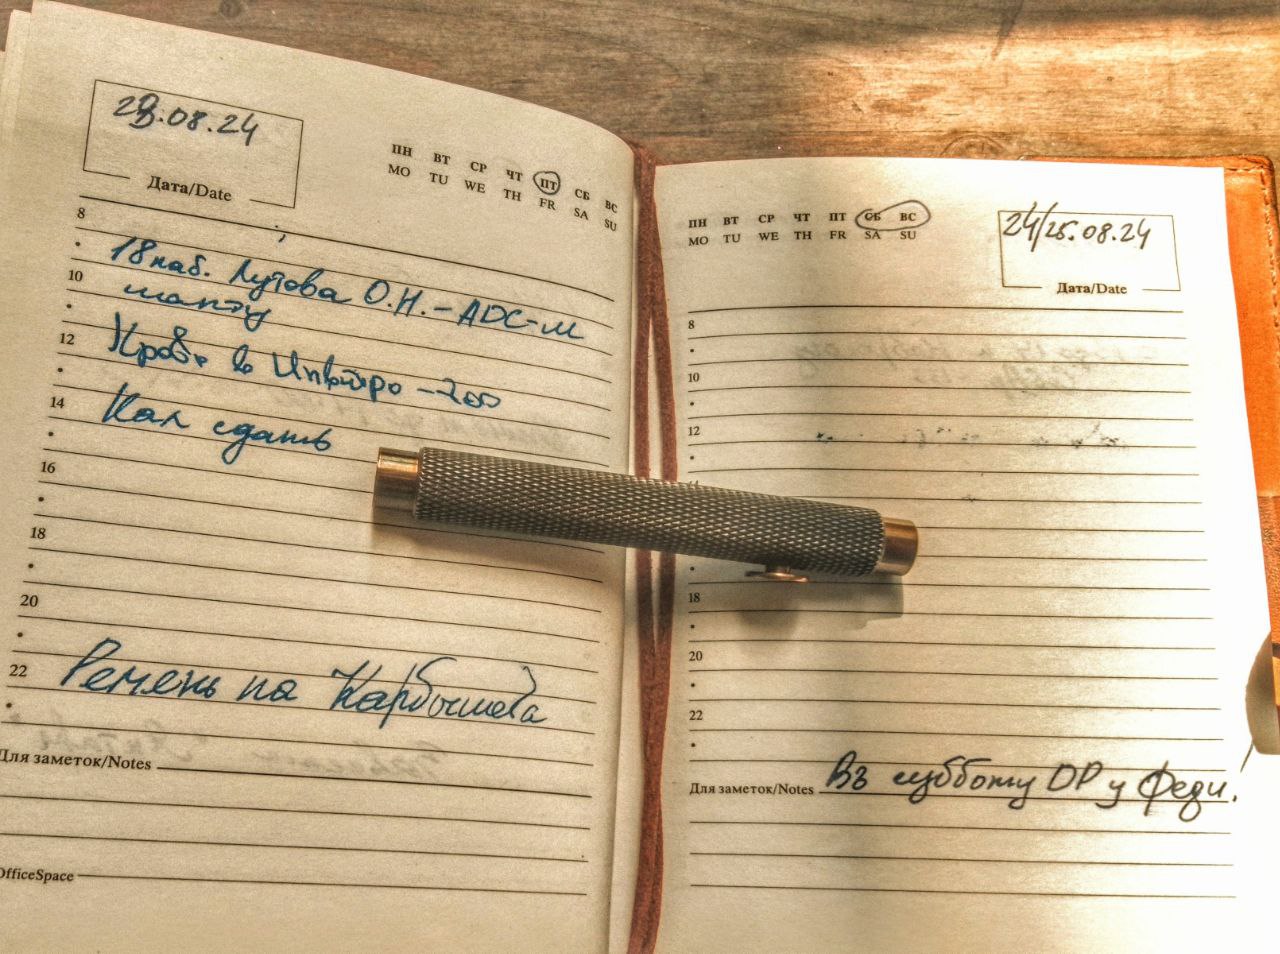 23.08.24
Дата/Date
ПН ВТ СР ЧТ ПТ СБ ВС
MO TU WE TH FR SA SU
8
18 каб. Лутова О.Н. - АДС-М
10
манту
12
Кровь в Инвитро - 200
14
Кал сдать
16
18
20
22
Ремень на Карбышева
Для заметок/Notes
OfficeSpace
ПН ВТ СР ЧТ ПТ СБ ВС
MO TU WE TH FR SA SU
24/25.08.24
Дата/Date
8
10
12
18
20
22
Для заметок/Notes Въ субботу ДР у Феди.